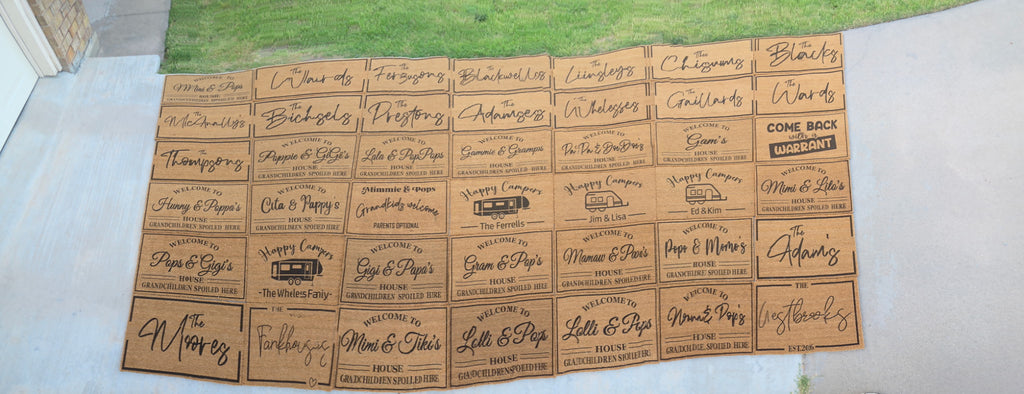 WELCOME TO
Mimi & Pops
GRANDCHILDREN SPOILED HERE
The
The
Fergusons
The
Blackwelles
The
Linsleys
The
Chisums
The
Blacks
The
McAnally's
The
Bichsels
The
Prestons
The
Adamses
The
Whelesses
The
Gaillards
The
Wards
The
Thompsons
WELCOME TO
Poppie & GiGi's
HOUSE
GRANDCHILDREN SPOILED HERE
WELCOME TO
Lala & PopPops
HOUSE
GRANDCHILDREN SPOILED HERE
WELCOME TO
Gammie & Gramps
HOUSE
GRANDCHILDREN SPOILED HERE
WELCOME TO
HOUSE
GRANDCHILDREN SPOILED HERE
WELCOME TO
Gam's
HOUSE
GRANDCHILDREN SPOILED HERE
COME BACK
with a
WARRANT
WELCOME TO
Hunny & Poppa's
HOUSE
GRANDCHILDREN SPOILED HERE
WELCOME TO
Cita & Pappy's
HOUSE
GRANDCHILDREN SPOILED HERE
Mimmie & Pops
Grandkids welcome
PARENTS OPTIONAL
Happy Campers
The Ferrells
Happy Campers
Jim & Lisa
Happy Campers
Ed & Kim
WELCOME TO
Mimi & Lita's
HOUSE
GRANDCHILDREN SPOILED HERE
WELCOME TO
Pops & Gigi's
HOUSE
GRANDCHILDREN SPOILED HERE
Happy Campers
The Wheless
WELCOME TO
Gigi & Papa's
HOUSE
GRANDCHILDREN SPOILED HERE
WELCOME TO
Gram & Pop's
HOUSE
GRANDCHILDREN SPOILED HERE
WELCOME TO
Mamaw &
HOUSE
GRANDCHILDREN SPOILED HERE
WELCOME TO
Popo & Momo's
HOUSE
GRANDCHILDREN SPOILED HERE
The
Adam's
The
Moores
THE
WELCOME TO
Mimi & Tiki's
HOUSE
GRANDCHILDREN SPOILED HERE
WELCOME TO
Lolli & Pops
HOUSE
GRANDCHILDREN SPOILED HERE
WELCOME TO
Lolli & Pops
HOUSE
GRANDCHILDREN SPOILED HERE
WELCOME TO
Nonna & Pop's
HOUSE
GRANDCHILDREN SPOILED HERE
THE
Westbrooks